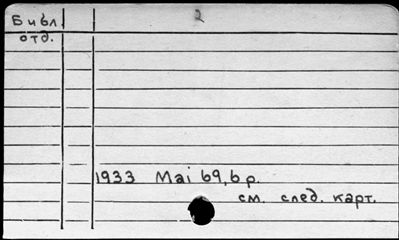 Библ. 2
отд.
1933 Mai 69, 6 p.
см. след. карт.